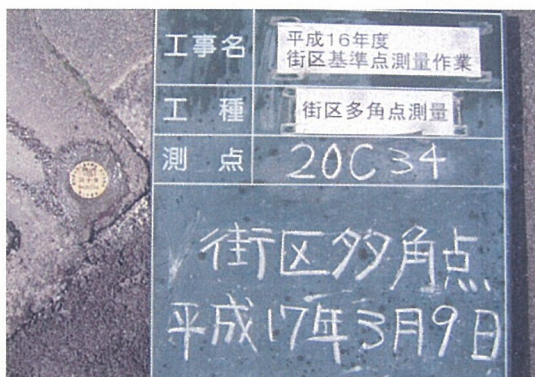 工事名 平成16年度
街区基準点測量作業
工種 街区多角点測量
測点 20C34
街区多角点
平成17年3月9日